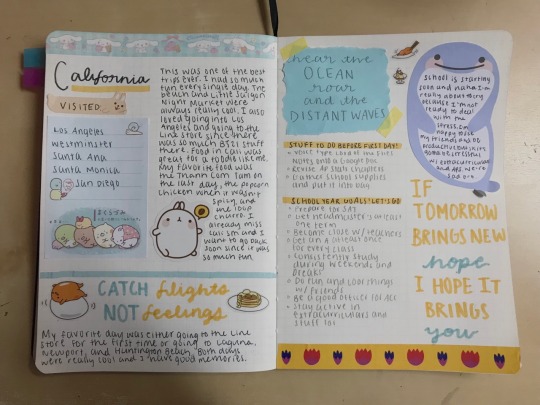 California
VISITED
Los Angeles
westminster
Santa Ana
Santa Monica
San Diego
This was one of the best
trips ever. I had so much
fun every single day. The
beach and Little Saigon
Night Market were
always really cool. I also
loved going into Los
Angeles and going to the
Line store since there
was so much BT21 stuff
there. Food in Cali was
great for a foodie like me.
My favorite food was
the Thanh Com Tam on
the last day, the popcorn
chicken when it wasn't
spicy, and
the churro. I
already miss
Cali sm and I
want to go back
soon since it was
so much fun.
CATCH flights
NOT feelings
My favorite day was either going to the Line
store for the first time or going to Laguna,
Newport, and Huntington Beach. Both days
were really cool and I have good memories.
hear the
OCEAN
roar
and the
DISTANT WAVES
STUFF TO DO BEFORE FIRST DAY!
Notes into a Google Doc
Gather school supplies
and put it into bag
SCHOOL YEAR GOALS! LET'S GO
Prepare for SAT
Get headmaster's at least
one term
Become close w/ teachers
Get an A at least once
for every class
Consistently study
during weekends and
breaks
Do fun and cool things
w/ friends
Be a good officer for
Stay active in
extracurriculars and
stuff lol
School is starting
soon and haha I'm
really about
because I'm not
ready to deal
with the
stress. I'm
happy
my friends and
productive
w/ extracurriculars
and
IF
TOMORROW
BRINGS NEW
hope
I HOPE IT
BRINGS
you